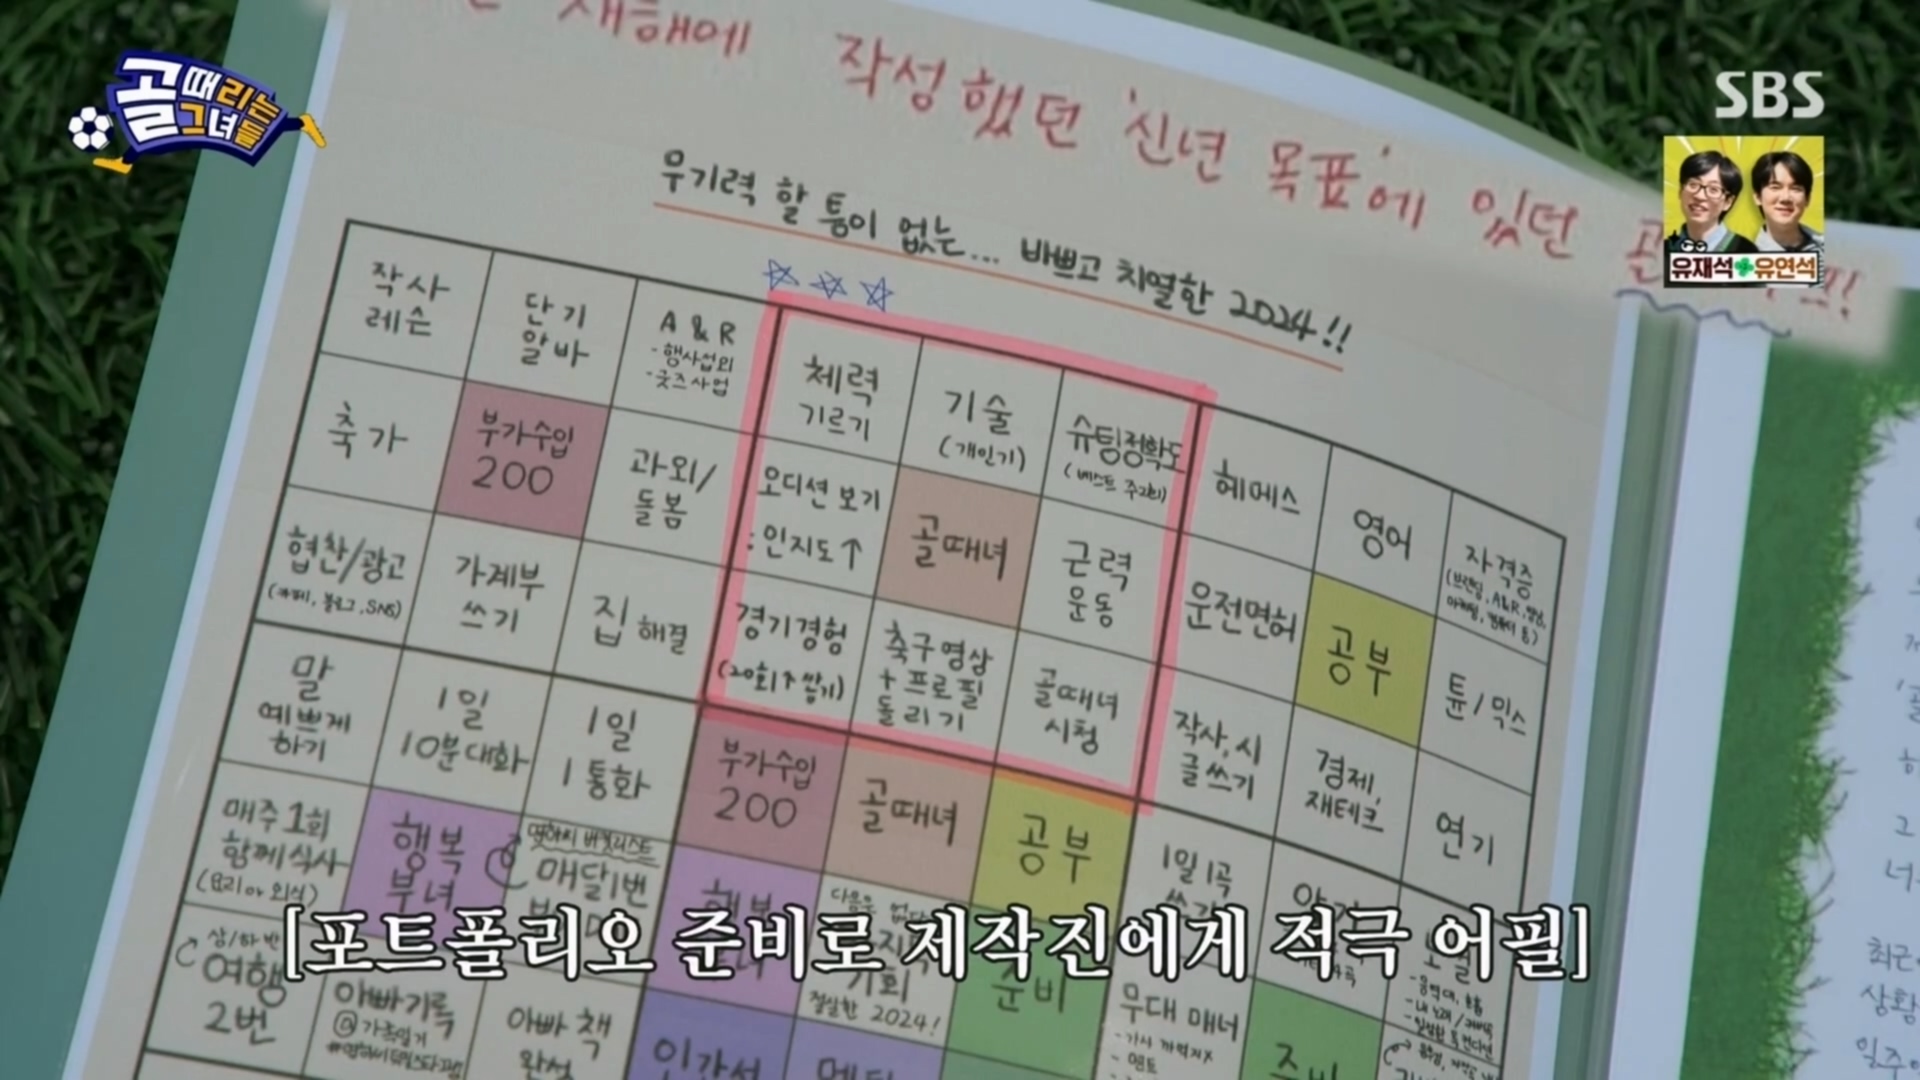 골때리는
그녀들
SBS
유재석 유연석
새해에 작성했던 '신년 목표'에 있던
무기력 할 틈이 없는... 바쁘고 치열한 2024!!
작사
레슨
단기
알바
A & R
- 행사섭외
- 굿즈사업
체력
기르기
기술
(개인기)
슈팅정확도
헤메스
영어
자격증
축가
부가수입
200
과외/
돌봄
오디션 보기
: 인지도↑
골때녀
근력
운동
운전면허
공부
튠/믹스
협찬/광고
(카페, 블로그, SNS)
가계부
쓰기
집 해결
경기경험
(20회↑ 쌓기)
축구영상
+ 프로필
돌리기
골때녀
시청
작사, 시
글쓰기
경제,
재테크
연기
말
예쁘게
하기
1일
10분대화
1일
1통화
부가수입
200
골때녀
공부
1일1곡
쓰기
매주 1회
함께식사
(요리 or 외식)
행복
부녀
버킷리스트
매달1번
다음은 없다
기회
절실한 2024!
준비
[포트폴리오 준비로 제작진에게 적극 어필]
상/하반
여행
2번
아빠기록
아빠 책
완성
무대 매너
최근
상황
일주